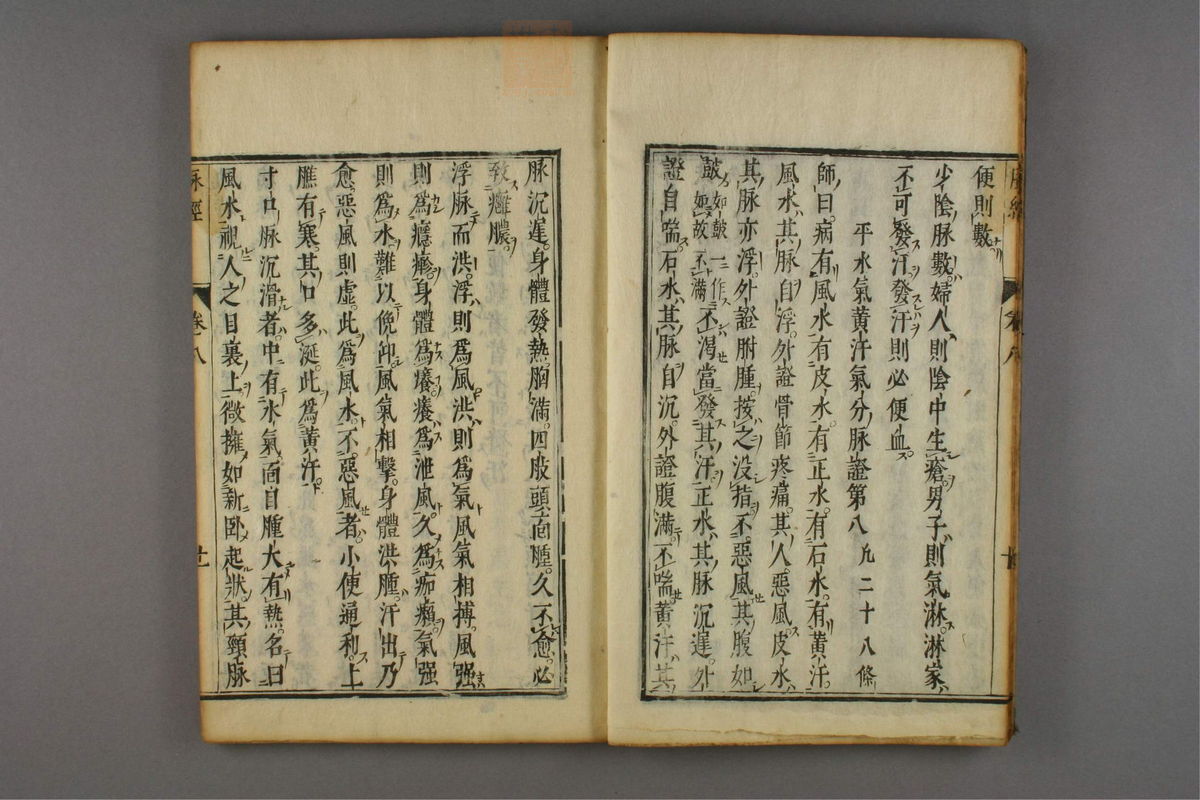 便則數
少陰脉數婦人則陰中生瘡男子則氣淋淋家
不可發汗發汗則必便血
平水氣黃汗氣分脉證第八 凡二十八條
師曰病有風水有皮水有正水有石水有黃汗
風水其脉自浮外證骨節疼痛其人惡風皮水
其脉亦浮外證胕腫按之没指不惡風其腹如
鼓如鼓一作如故不滿不渴當發其汗正水其脉沉遲外
證自喘石水其脉自沉外證腹滿不喘黃汗其
脉經
卷八
脉沉遲身體發熱胸滿四肢頭面腫久不愈必
致癰膿
浮脉而洪浮則為風洪則為氣風氣相搏風强
則為癮疹身體為癢癢為泄風久為痂癩氣强
則為水難以俛仰風氣相擊身體洪腫汗出乃
愈惡風則虛此為風水不惡風者小便通利上
膲有寒其口多涎此為黃汗
寸口脉沉滑者中有水氣面目腫大有熱名曰
風水視人之目裏上微擁如新卧起狀其頸脉
脉經
卷八
廿一